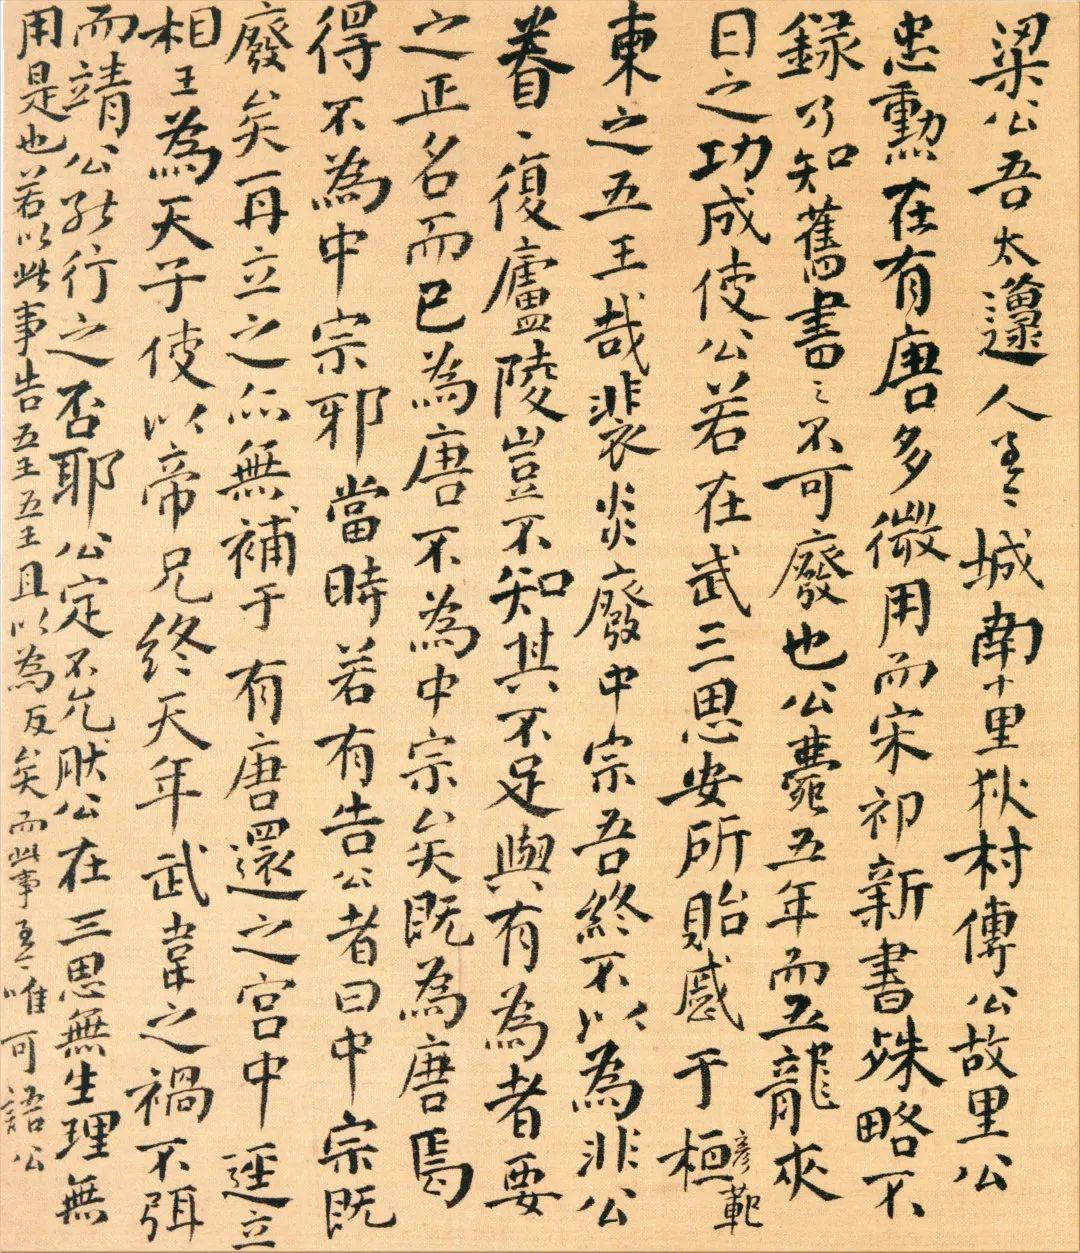 梁公吾太邍人城南十里狄村傳公故里公
忠勳在有唐多微用而宋祁新書殊略不
録乃知舊書之不可廢也公薨五年而五龍夾
日之功成使公若在武三思安所貽慼于桓彦範
柬之五王哉裴炎廢中宗吾終不以為非公
眷〻復廬陵豈不知其不足與有為者要
之正名而已為唐不為中宗矣既為唐焉
得不為中宗邪當時若有告公者曰中宗既
廢矣再立之亦無補于有唐還之宫中逕立
相王為天子使以帝兄終天年武韋之禍不弭
而靖公能行之否耶公定不允肰公在三思無生理無
用是也若以此事告五王五王且以為反矣而此事唯可語公